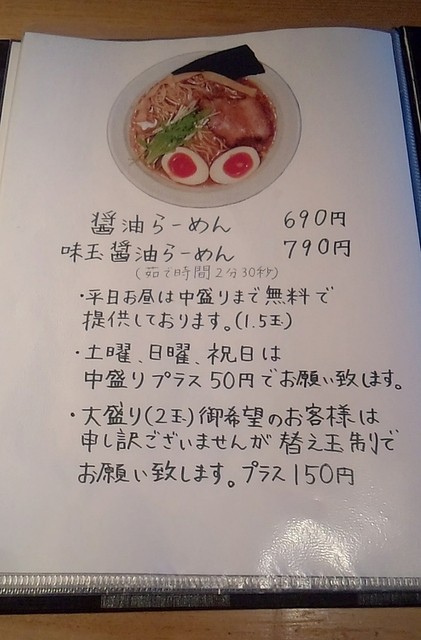 醤油らーめん 690円
味玉醤油らーめん 790円
(茹で時間2分30秒)
・平日お昼は中盛りまで無料で
提供しております。(1.5玉)
・土曜、日曜、祝日は
中盛りプラス50円でお願い致します。
・大盛り(2玉)御希望のお客様は
申し訳ございませんが替え玉制で
お願い致します。プラス150円